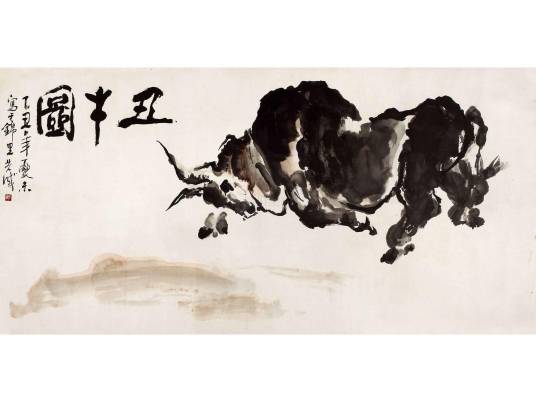 丑牛圖
丁丑年夏末
寫於錦里